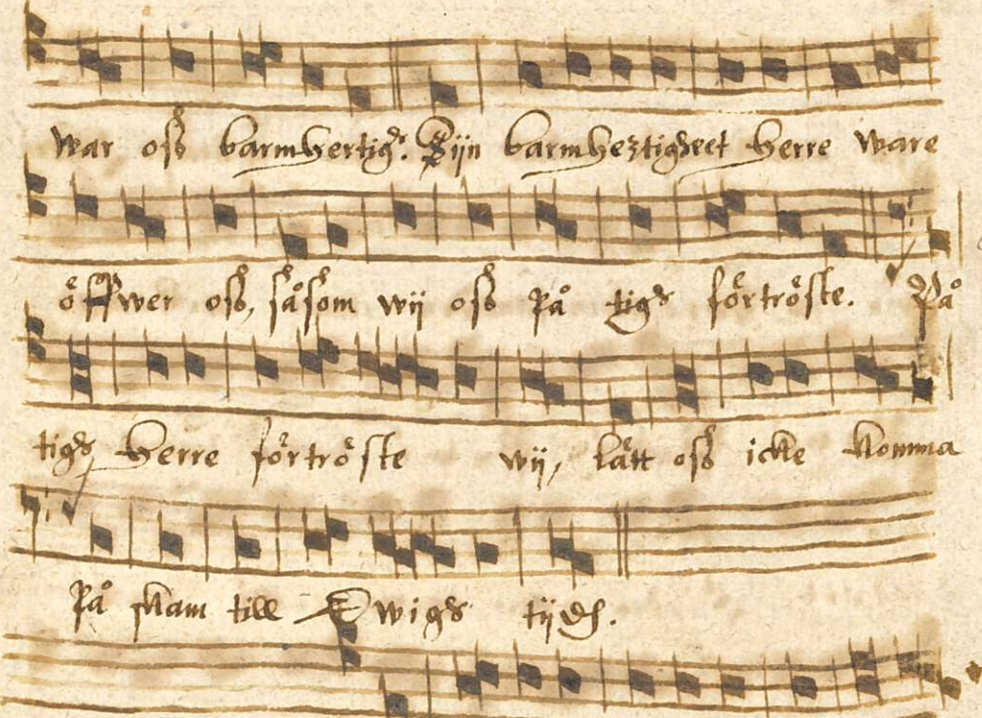 war oß barmhertigh. Tijn barmhertigheet herre ware
öffwer oß, såsom wij oß på tigh förtröste. På
tigh herre förtröste wij, lått oß icke komma
På skam till Ewigh tijdh.